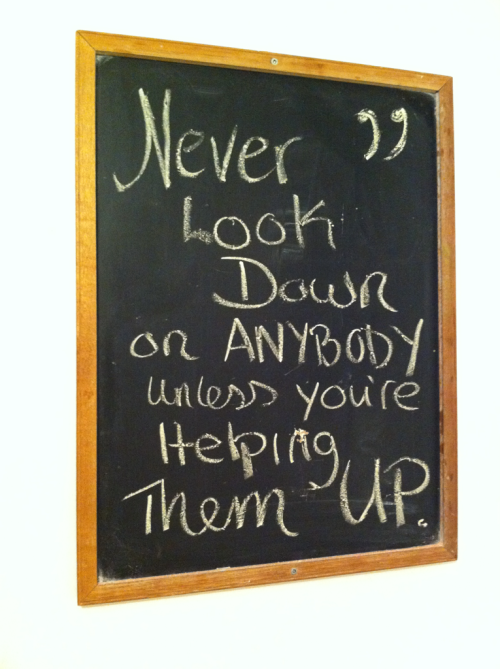 Never ”
Look
Down
on ANYBODY
unless you're
Helping
Them UP.